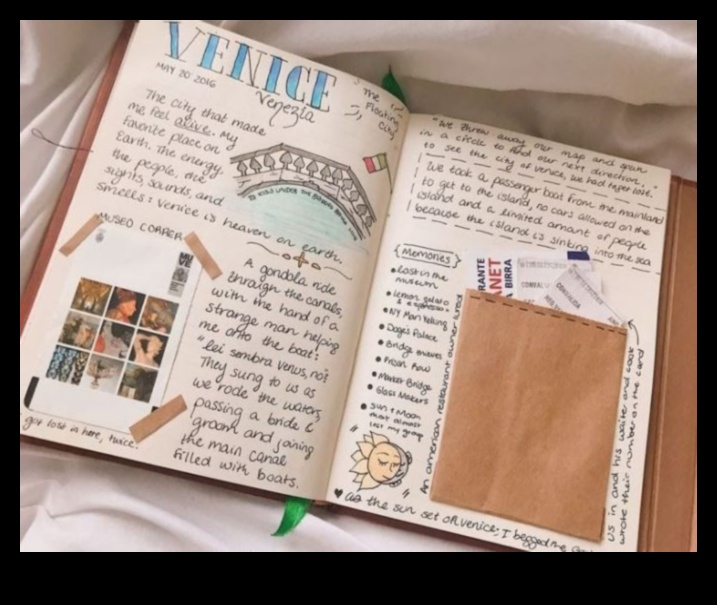 VENICE
MAY 20 2016
Venezia
The
Floating
City
The city that made
me feel alive. My
favorite place on
Earth. The energy,
the people, the
sights, sounds, and
smells: Venice is heaven on earth.
TO KISS UNDER THE
MUSEO CORRER
MU
VE
got lost in here, twice.
A gondola ride
through the canals,
with the hand of a
strange man helping
me onto the boat:
"lei sembra Venus, no?
They sung to us as
we rode the waters,
passing a bride &
groom and joining
the main canal
filled with boats.
"We threw away our map and spun
in a circle to find our next direction,
to see the city of Venice, we had to get lost."
We took a passenger boat from the mainland
to get to the island, no cars allowed on the
island and a limited amount of people
because the island is sinking into the sea
{Memories}
Lost in the
museum
lemon gelato
NY Man Yelling
Doge's Palace
Bridge
Prison Row
Market Bridge
Glass Makers
Sun & Moon
that almost
lost my group
RANTE
ANET
A BIRRA
An american restaurant owner lured
us in and his waiter and cook
wrote their number on the card
as the sun set on Venice, I begged the